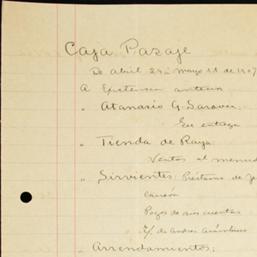 Caja Pasaje
De Abril 24 a Mayo 11 de 1907
A Existencia anterior
" Atanasio G. Saravia
Su entrega
" Tienda de Raya
Ventas al menudeo
" Sirvientes: Préstamo de
Pagos de sus cuentas
" Arrendamientos: